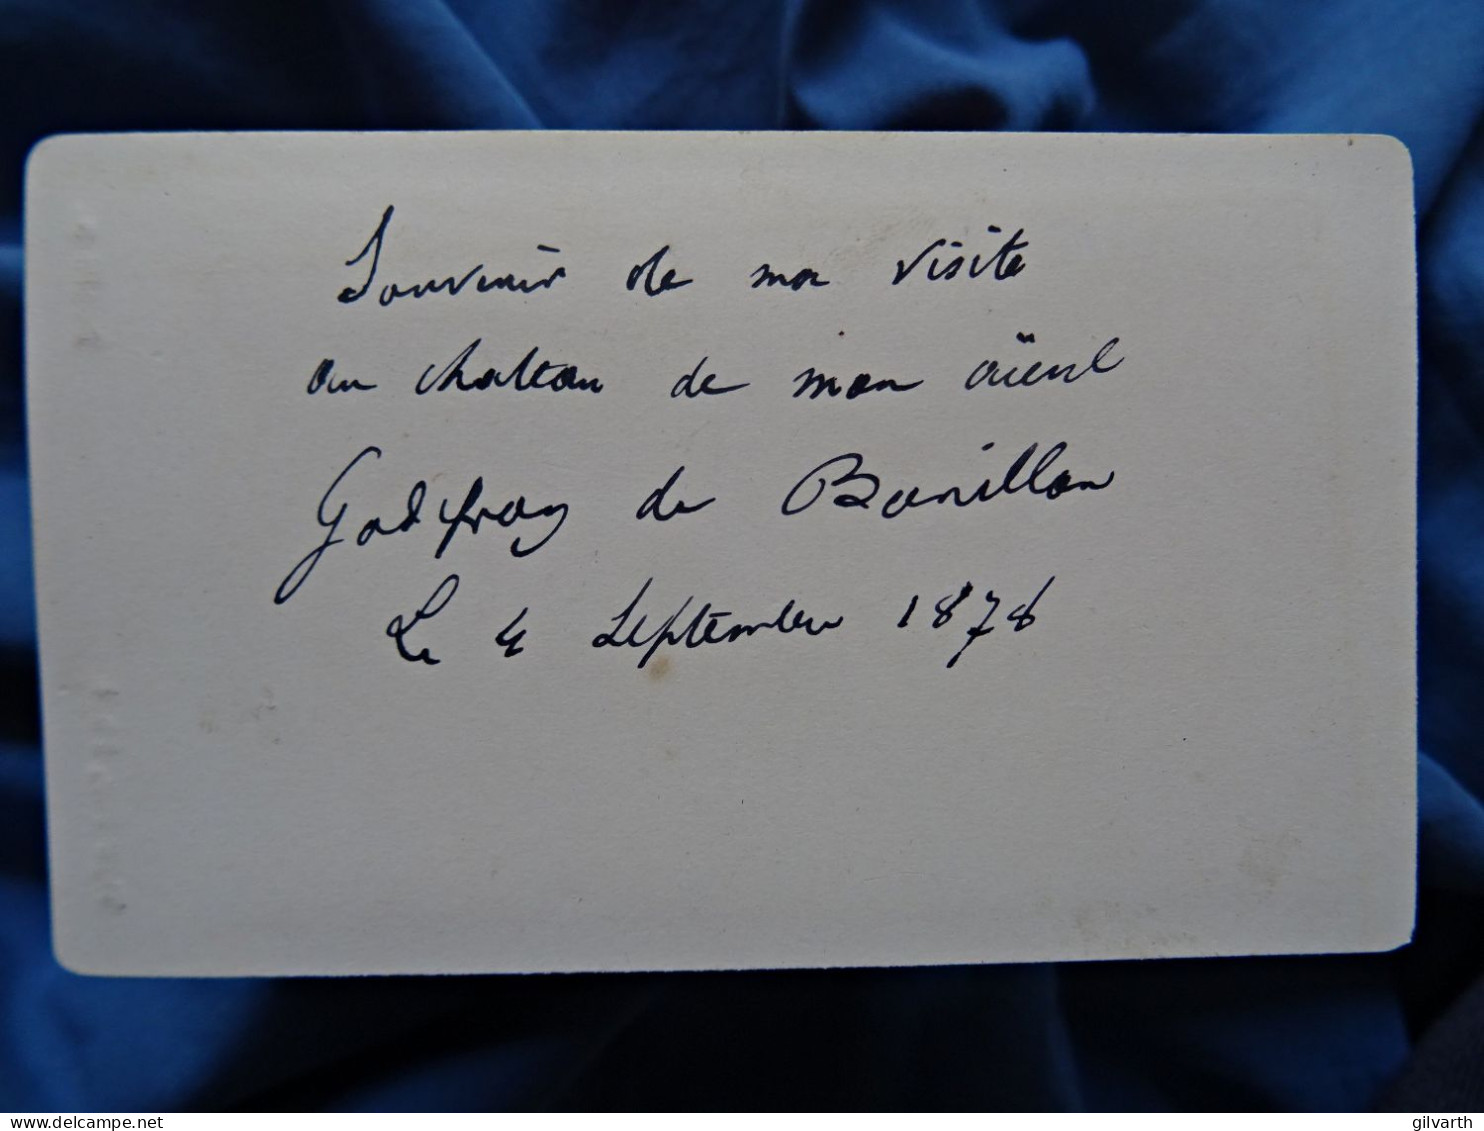 Souvenir de ma visite
au chateau de mon aïeul
Godefroy de Bouillon
Le 4 Septembre 1878
www.delcampe.net
gilvarth